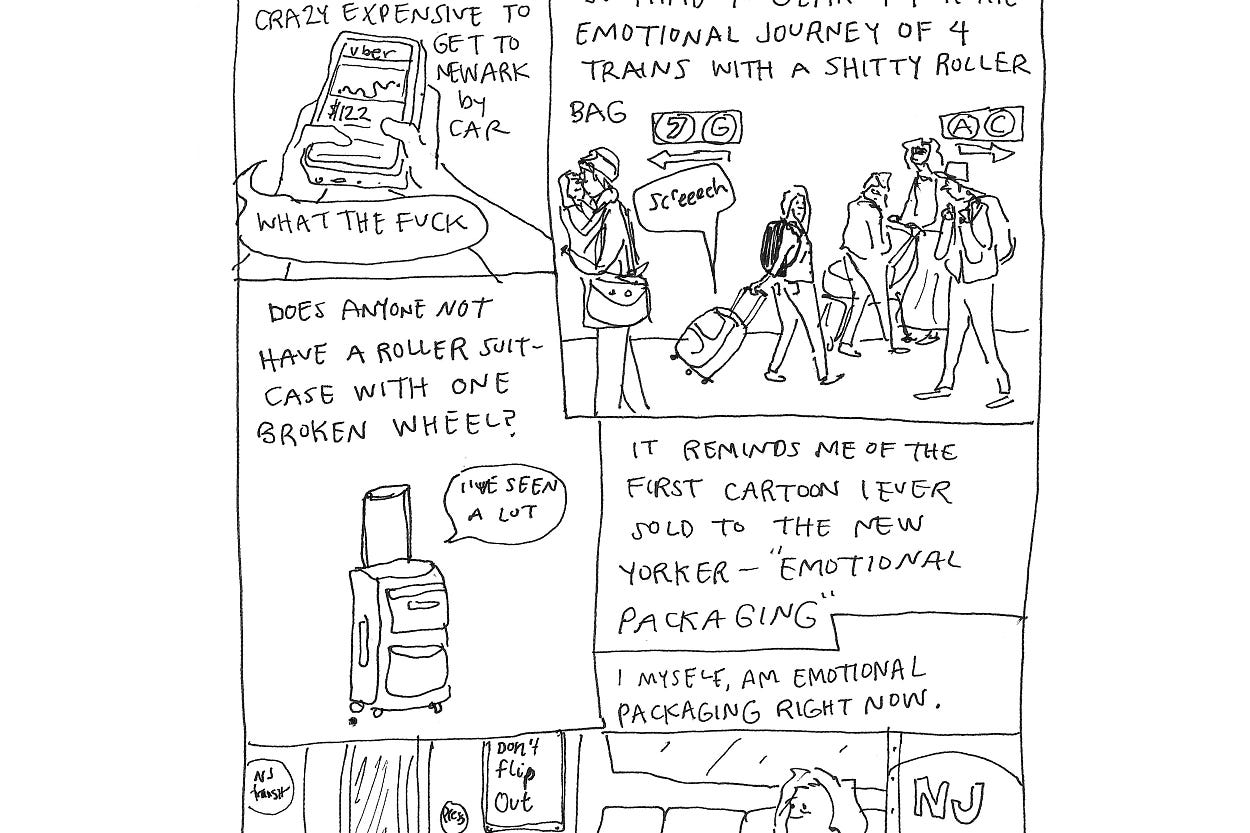 CRAZY EXPENSIVE TO
GET TO
NEWARK
by
CAR
uber
$122
WHAT THE FUCK
EMOTIONAL JOURNEY OF 4
TRAINS WITH A SHITTY ROLLER
BAG
G
A C
Screeech
DOES ANYONE NOT
HAVE A ROLLER SUIT-
CASE WITH ONE
BROKEN WHEEL?
I'VE SEEN
A LOT
IT REMINDS ME OF THE
FIRST CARTOON I EVER
SOLD TO THE NEW
YORKER - "EMOTIONAL
PACKAGING"
I MYSELF, AM EMOTIONAL
PACKAGING RIGHT NOW.
NJ
transit
Press
DON'T
flip
Out
NJ